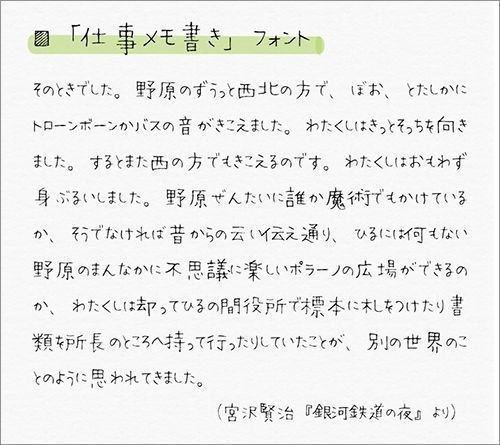 ▨ 「仕事メモ書き」 フォント
そのときでした。野原のずうっと西北の方で、ぼお、とたしかに
トローンボーンかバスの音がきこえました。わたくしはきっとそっちを向き
ました。するとまた西の方でもきこえるのです。わたくしはおもわず
身ぶるいしました。野原ぜんたいに誰か魔術でもかけている
か、そうでなければ昔からの云い伝え通り、ひるには何もない
野原のまんなかに不思議に楽しいポラーノの広場ができるの
か、わたくしは却ってひるの間役所で標本に札をつけたり書
類を所長のところへ持って行ったりしていたことが、別の世界のこ
とのように思われてきました。
(宮沢賢治『銀河鉄道の夜』より)